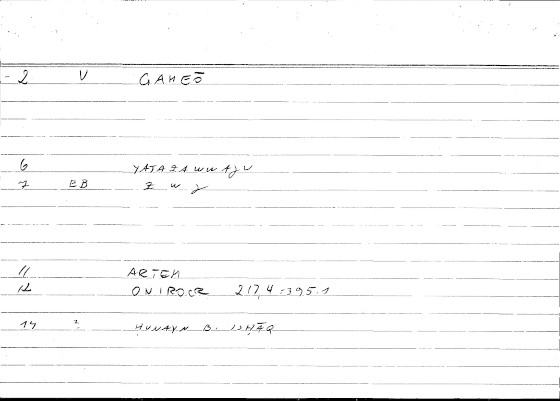 2 V GAMEŌ
6 YATAZAWWAJU
7 BB Z W J
11 ARTEM
12 ONIROCR 217,4 = 395.1
14 ? ḤUNAYN B. ISḤĀQ